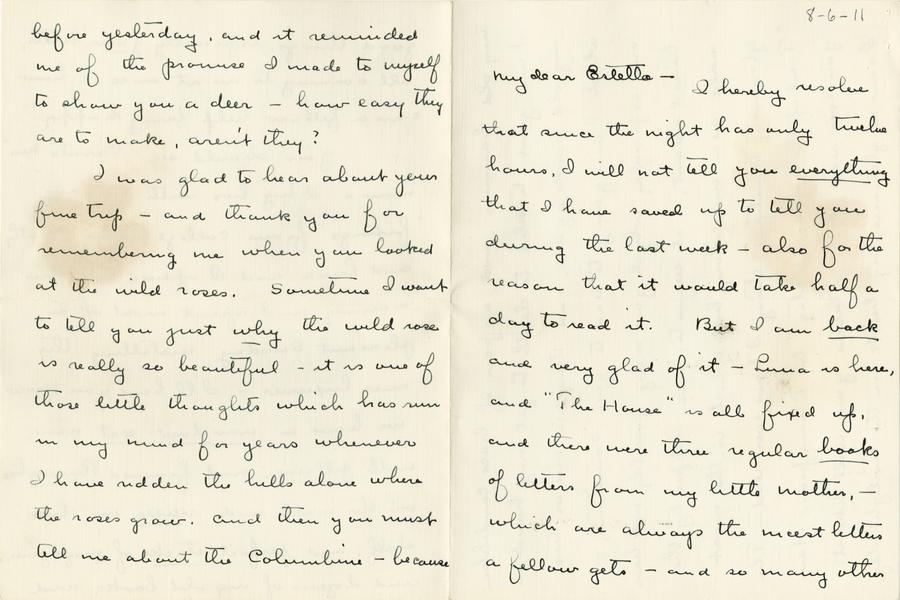 before yesterday, and it reminded
me of the promise I made to myself
to show you a deer — how easy they
are to make, aren't they?
I was glad to hear about your
fine trip — and thank you for
remembering me when you looked
at the wild roses. Sometime I want
to tell you just why the wild rose
is really so beautiful - it is one of
those little thoughts which has run
in my mind for years whenever
I have ridden the hills alone where
the roses grow. And then you must
tell me about the Columbine — because
8-6-11
My dear Estella —
I hereby resolve
that since the night has only twelve
hours, I will not tell you everything
that I have saved up to tell you
during the last week — also for the
reason that it would take half a
day to read it. But I am back
and very glad of it — Luna is here,
and "The House" is all fixed up,
and there were three regular books
of letters from my little mother, —
which are always the nicest letters
a fellow gets — and so many other